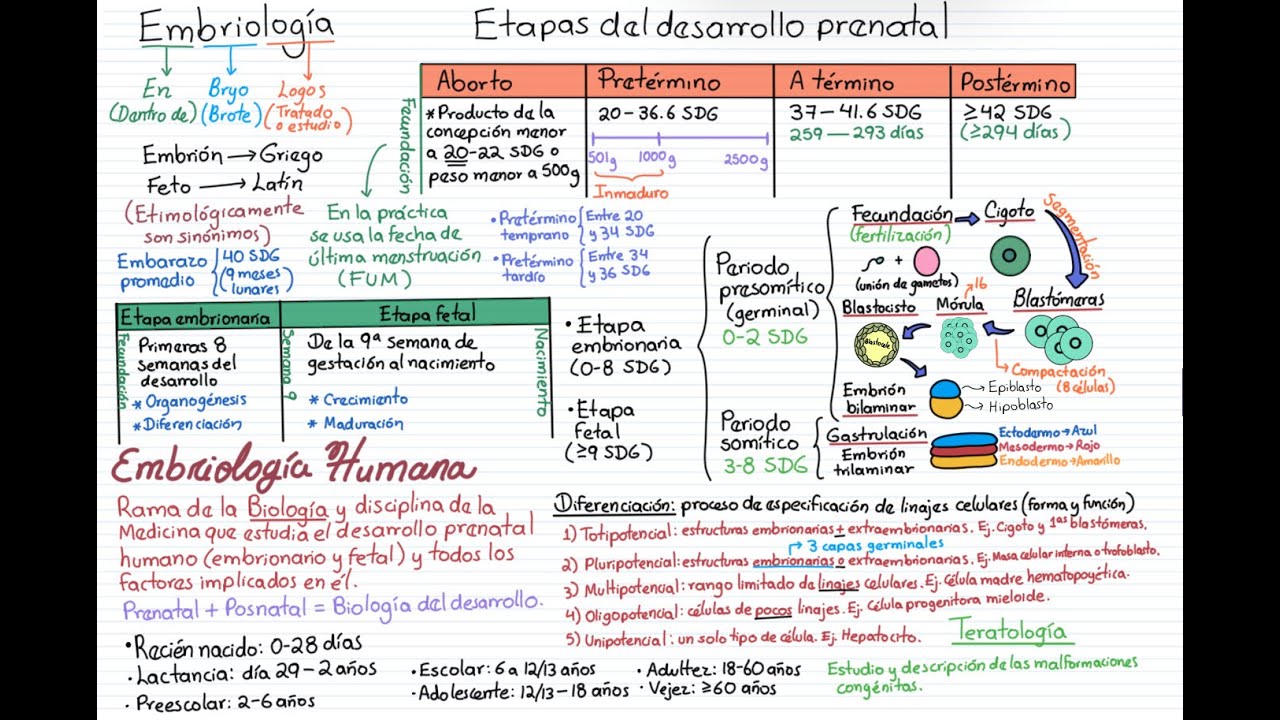 Embriología
En
(Dentro de)
Bryo
(Brote)
Logos
(Tratado
o estudio)
Embrión → Griego
Feto → Latín
(Etimológicamente
son sinónimos)
Embarazo
promedio
40 SDG
(9 meses
lunares)
Etapas del desarrollo prenatal
Fecundación
Aborto
*Producto de la
concepción menor
a 20-22 SDG o
peso menor a 500g
Pretérmino
20-36.6 SDG
501g 1000g 2500g
Inmaduro
A término
37-41.6 SDG
259—293 días
Postérmino
≥42 SDG
(≥294 días)
En la práctica
se usa la fecha de
última menstruación
(FUM)
• Pretérmino
temprano
Entre 20
y 34 SDG
• Pretérmino
tardío
Entre 34
y 36 SDG
Etapa embrionaria
Fecundación
Primeras 8
semanas del
desarrollo
* Organogénesis
* Diferenciación
Etapa fetal
Semana 9
De la 9ª semana de
gestación al nacimiento
* Crecimiento
* Maduración
Nacimiento
• Etapa
embrionaria
(0-8 SDG)
• Etapa
Fetal
(≥9 SDG)
Periodo
presomítico
(germinal)
0-2 SDG
Periodo
somítico
3-8 SDG
Fecundación → Cigoto
(fertilización)
+
(unión de gametos)
Segmentación
Blastómeras
Mórula
→16
Compactación
(8 células)
Blastocisto
Blastocele
Embrión
bilaminar
Epiblasto
Hipoblasto
Gastrulación
Embrión
trilaminar
Ectodermo→Azul
Mesodermo→Rojo
Endodermo→Amarillo
Embriología Humana
Rama de la Biología y disciplina de la
Medicina que estudia el desarrollo prenatal
humano (embrionario y fetal) y todos los
factores implicados en él.
Prenatal + Posnatal = Biología del desarrollo.
Diferenciación: proceso de especificación de linajes celulares (forma y función)
1) Totipotencial: estructuras embrionarias + extraembrionarias. Ej. Cigoto y 1as blastómeras.
→ 3 capas germinales
2) Pluripotencial: estructuras embrionarias o extraembrionarias. Ej. Masa celular interna o trofoblasto.
3) Multipotencial: rango limitado de linajes celulares. Ej. Célula madre hematopoyética.
4) Oligopotencial: células de pocos linajes. Ej. Célula progenitora mieloide.
5) Unipotencial: un solo tipo de célula. Ej. Hepatocito.
Teratología
Estudio y descripción de las malformaciones
congénitas.
• Recién nacido: 0-28 días
• Lactancia: día 29-2 años
• Preescolar: 2-6 años
• Escolar: 6 a 12/13 años
• Adolescente: 12/13-18 años
• Adultez: 18-60 años
• Vejez: ≥60 años